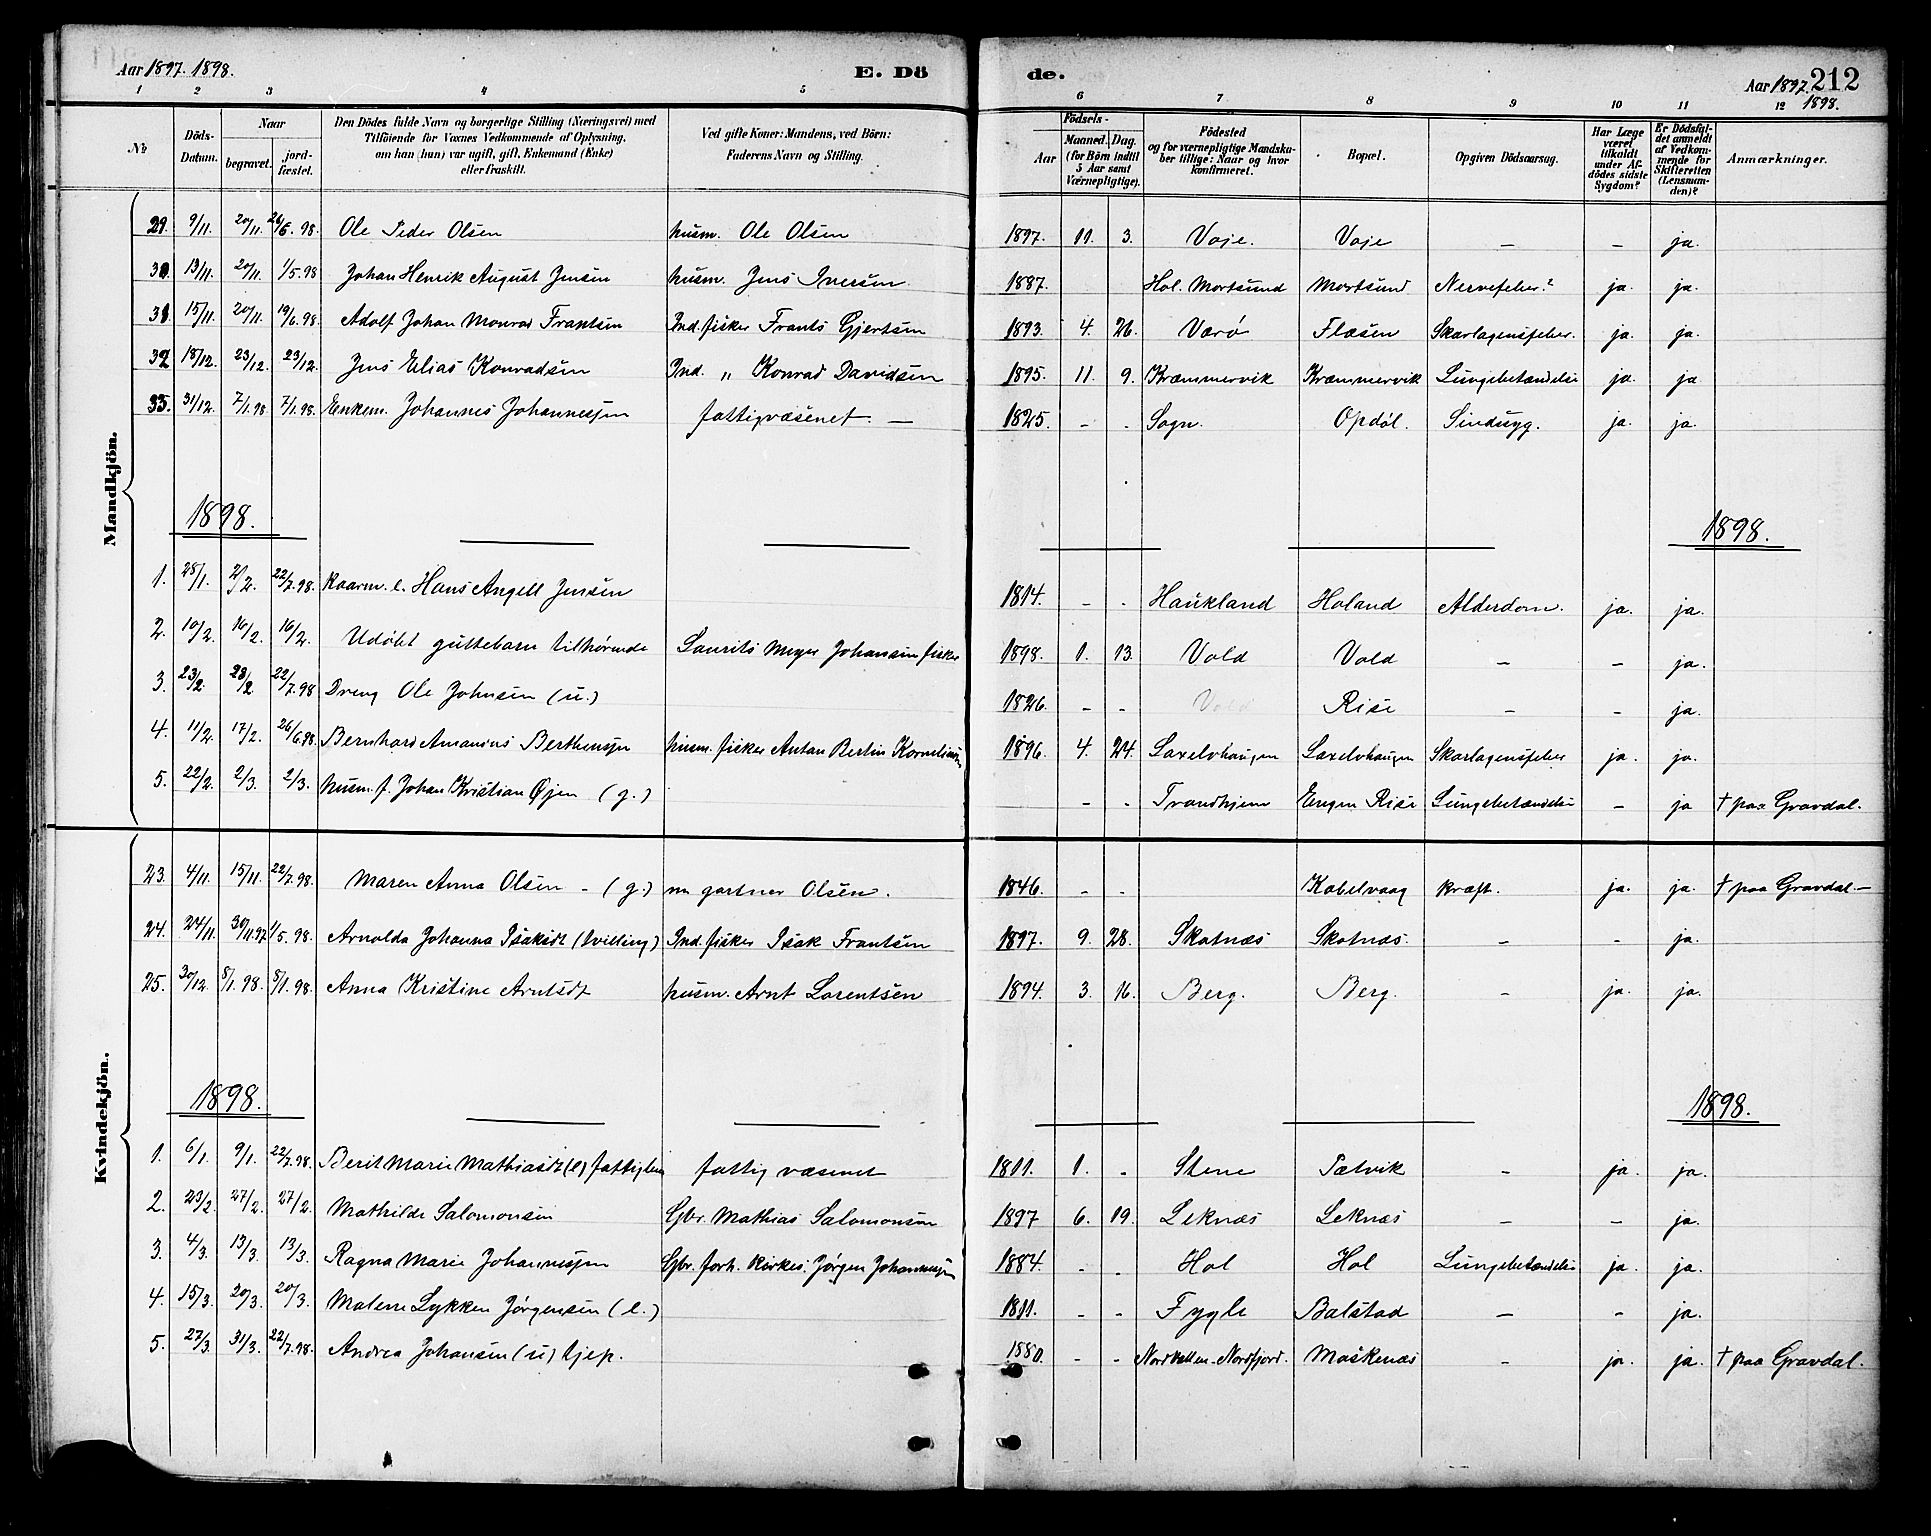 Aar 1897. 1898. E. Dö de. Aar 1897. 212
1898.
1 2 3 4 5 6 7 8 9 10 11 12
№ Döds-Datum. Naar begravet. jord-fæstet. Den Dödes fulde Navn og borgerlige Stilling (Næringsvei) med Tilföiende for Voxnes Vedkommende af Oplysning, om han (hun) var ugift, gift, Enkemand (Enke) eller fraskilt. Ved gifte Koner: Mandens, ved Börn: Faderens Navn og Stilling. Födsels- Aar Maaned. Dag. (for Börn indtil 5 Aar samt Værnepligtige). Födested og for værnepligtige Mandska-ber tillige: Naar og hvor konfirmeret. Bopæl. Opgiven Dödsaarsag. Har Læge været tilkaldt under Af-dödes sidste Sygdom? Er Dödsfal-det anmeldt af Vedkom-mende for Skifteretten (Lensman-den)? Anmærkninger.
Mandkjön.
29. 9/11. 20/11. 26/5. 98. Ole Peder Olsen husm. Ole Olsen 1897. 11. 3. Voje. Voje – – ja.
30. 13/11. 20/11. 1/5. 98 Johan Henrik August Jensen husm. Jens Iversen 1887. Hol. Mortsund Mortsund Nervefeber? ja. ja.
31. 15/11. 20/11. 19/6. 98. Adolf Johan Monrad Frantsen Ind. fisker Frants Gjertsen 1893. 4. 26. Værø Flæsen Skarlagensfeber. ja. ja.
32 18/12. 23/12. 23/12. Jens Elias Konradsen Ind. „ Konrad Davidsen 1895. 11. 9. Kræmmervik Kræmmervik Lungebetændelse ja. ja
33. 31/12. 7/1. 98 7/1. 98. Enkem. Johannes Johannessen fattigvæsenet. — 1825. - - Sogn. Opdøl. Sindsyg. ja. ja.
1898. 1898.
1. 28/1. 2/2. 22/7. 98. Kaarm. e. Hans Angell Jensen 1814. - - Haukland Holand Alderdom. ja. ja.
2. 10/2. 16/2. 16/2. Udøbt guttebarn tilhørende Laurits Meyer Johansen fisker 1898. 1. 13. Vold Vold – – ja.
3. 23/2. 28/2 22/7. 98 Dreng Ole Johnsen (u.) 1826. - - Vold Rise – – ja.
4. 11/2. 17/2. 26/6. 98. Bernhard Amandus Berthensen husm. fisker Antan Bertin Korneliussen 1896. 4. 24. Laxelvhaugen Laxelvhaugen Skarlagensfeber ja. ja.
5. 22/2. 2/3. 2/3. husm. f. Johan Kristian Øjen (g.) - - Trondhjem Engen Rise Lungebetændelse - ja † paa Gravdal.
Kvindekjön.
23. 4/11. 15/11. 22/7. 98. Maren Anna Olsen - (g.) m gartner Olsen. 1846. - - Kabelvaag kræft. ja. ja. † paa Gravdal.—
24. 24/11. 30/11. 97 1/5. 98. Arnolda Johanna Isaksdt (tvilling) Ind. fisker Isak Frantsen 1897. 9. 28. Skotnæs Skotnæs. – - ja.
25. 30/12. 8/1. 98. 8/1. 98. Anna Kristine Arntsdt husm. Arnt Lorentsen 1894. 3. 16. Berg. Berg. - ja. ja.
1898. 1898.
1. 6/1. 9/1. 22/7. 98. Berit Marie Mathiasdt (e) fattiglem fattig væsenet 1811. 1. - Stene Petvik - ja. ja.
2. 23/2. 27/2. 27/2. Mathilde Salomonsen Gbr. Mathias Salomonsen 1897 6. 19. Leknæs Leknæs – – ja.
3. 4/3. 13/3. 13/3. Ragna Marie Johannessen Gbr. forh. kirkes. Jørgen Johannessen 1884. - - Hol Hol Lungebetændelse ja. ja.
4. 15/3. 20/3. 20/3. Malene Lykken Jørgensen (e.) 1811. - - Fygle Balstad – – ja.
5. 27/3. 31/3. 22/7. 98. Andrea Johansen (u) tjep. 1880. - - Nordfjord. Moskenæs - ja. ja. † paa Gravdal.